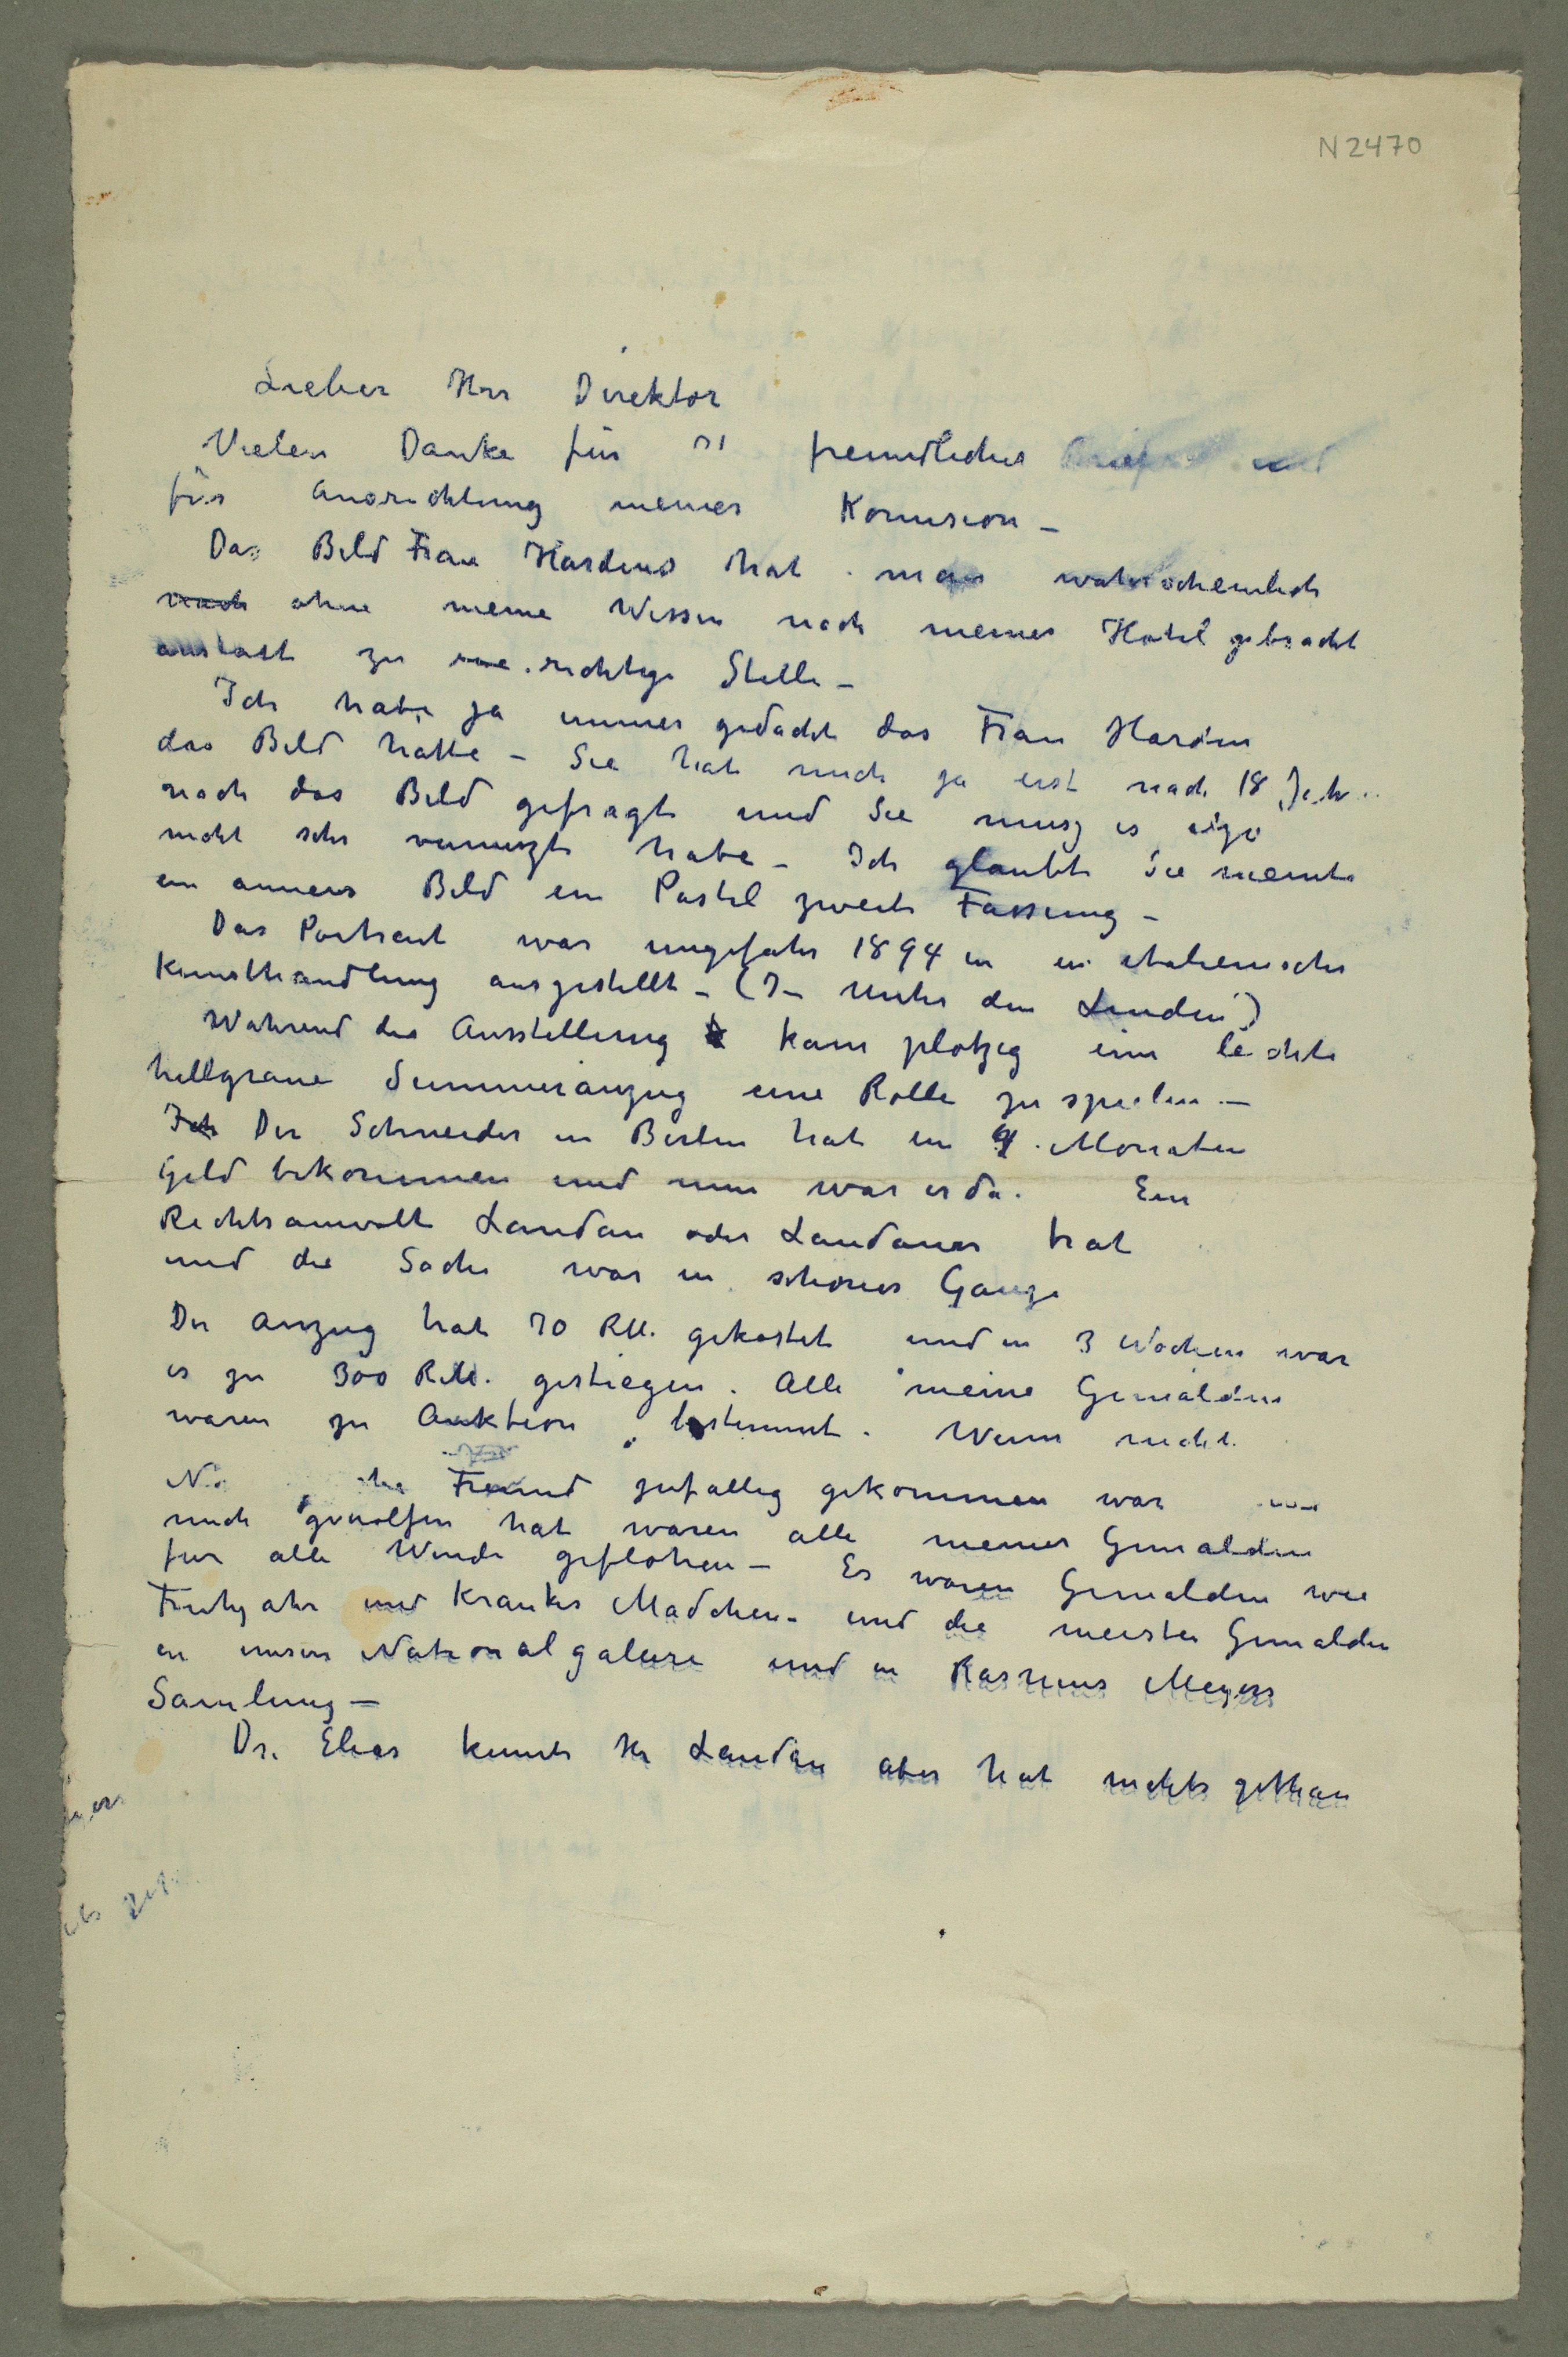 N 2470
Lieber Herr Direktor
Vielen Danke für freundliches Brief und
für Ausrichtung meiner Komision –
Das Bild Frau Hardens hat man wahrscheinlich
nach ohne meine Wissen nach meiner Hotel gebracht
anstatt zu richtige Stelle –
Ich habe ja immer gedacht das Frau Harden
das Bild hatte – Sie hat mich ja erst nach 18 Jah
nach das Bild gefragt und Sie musz es
nicht sehr vermiszt habe – Ich glaubte Sie meinte
ein anners Bild ein Pastel zweite Fassung –
Das Portrait war ungefahr 1894 in italienischer
Kunsthandlung ausgestellt – (In Unter den Linden)
Wahrend der Ausstellung kam plotzig ein leichte
hellgraue Summeranzug eine Rolle zu spielen –
Ich Der Schneider in Berlin hat in 4 Monaten
Geld bekommen und nun war er da. Ein
Rechtsanwalt Landau oder Landauer trat
und die Sache war in schoner Gange
Der Anzug hat 70 RM. gekostet und in 3 Wochen war
es zu 300 RM. gestiegen. Alle meine Gemälden
waren zu Auktion bestimmt. Wenn nicht
Freund zufallig gekommen war
mich geholfen hat waren alle meiner Gemalden
fur alle Winde geflohen – Es waren Gemalden wie
Fruhjahr und Krankes Madchen – und die meister Gemalden
in unsere Nationalgalerie und in Rasmus Meyers
Samlung –
Dr. Elias kennte Hr Landau aber hat nichts gethan